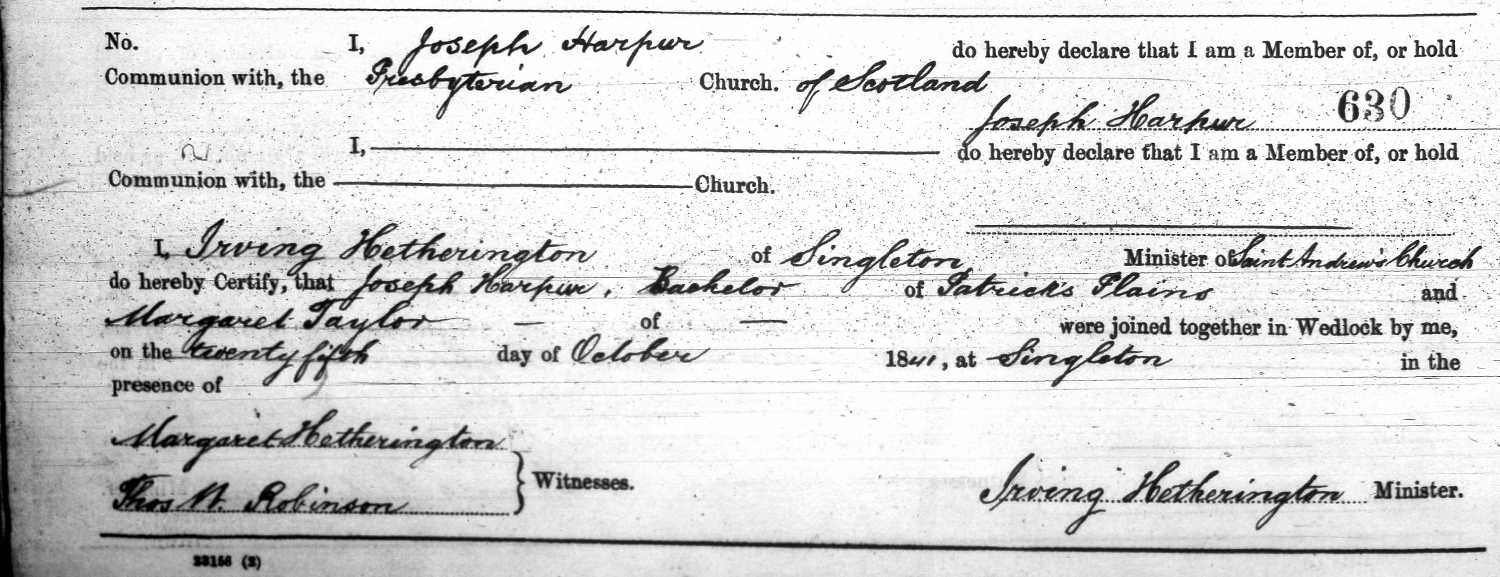 No. I, Joseph Harpur do hereby declare that I am a Member of, or hold
Communion with, the Presbyterian Church. of Scotland
Joseph Harpur 630
I, do hereby declare that I am a Member of, or hold
Communion with, the Church.
I, Irving Hetherington of Singleton Minister of Saint Andrew's Church
do hereby Certify, that Joseph Harpur, Bachelor of Patricks Plains and
Margaret Taylor — of — were joined together in Wedlock by me,
on the twenty fifth day of October 1841, at Singleton in the
presence of
Margaret Hetherington
Thos W. Robinson } Witnesses. Irving Hetherington Minister.
23156 (2)